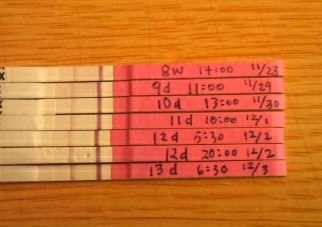 8W 14:00 11/28
9d 11:00 11/29
10d 13:00 11/30
11d 10:00 12/1
12d 5:30 12/2
12d 20:00 12/2
13d 6:30 12/3